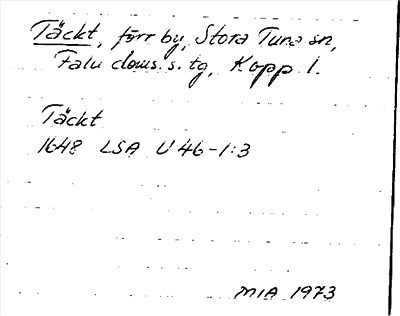 Täckt, förr by, Stora Tuna sn,
Falu doms. s. tg, Kopp. l.
Täckt
1648 LSA U 46-1:3
MIA 1973